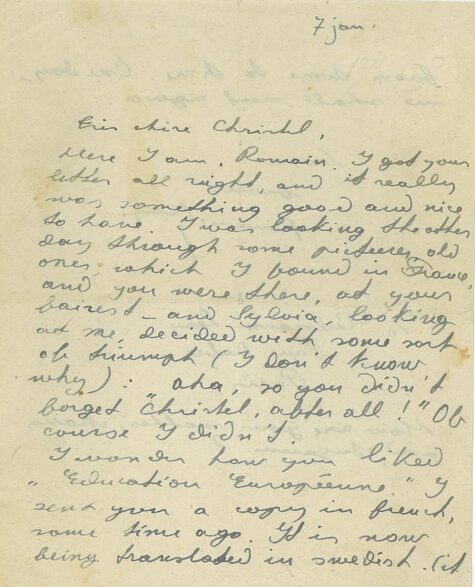 7 jan.
Christel,
Here I am, Romain. I got your
letter all right, and it really
was something good and nice
to have. I was looking the other
day through some pictures, old
ones, which I found in France,
and you were there, at your
fairest – and Sylvia, looking
at me, decided with some sort
of triumph (I don't know
why) : "aha, so you didn't
forget Christel, after all!" Of
course I didn't.
I wonder how you liked
"Education Européenne." I
sent you a copy in french,
some time ago. It is now
being translated in swedish. (it